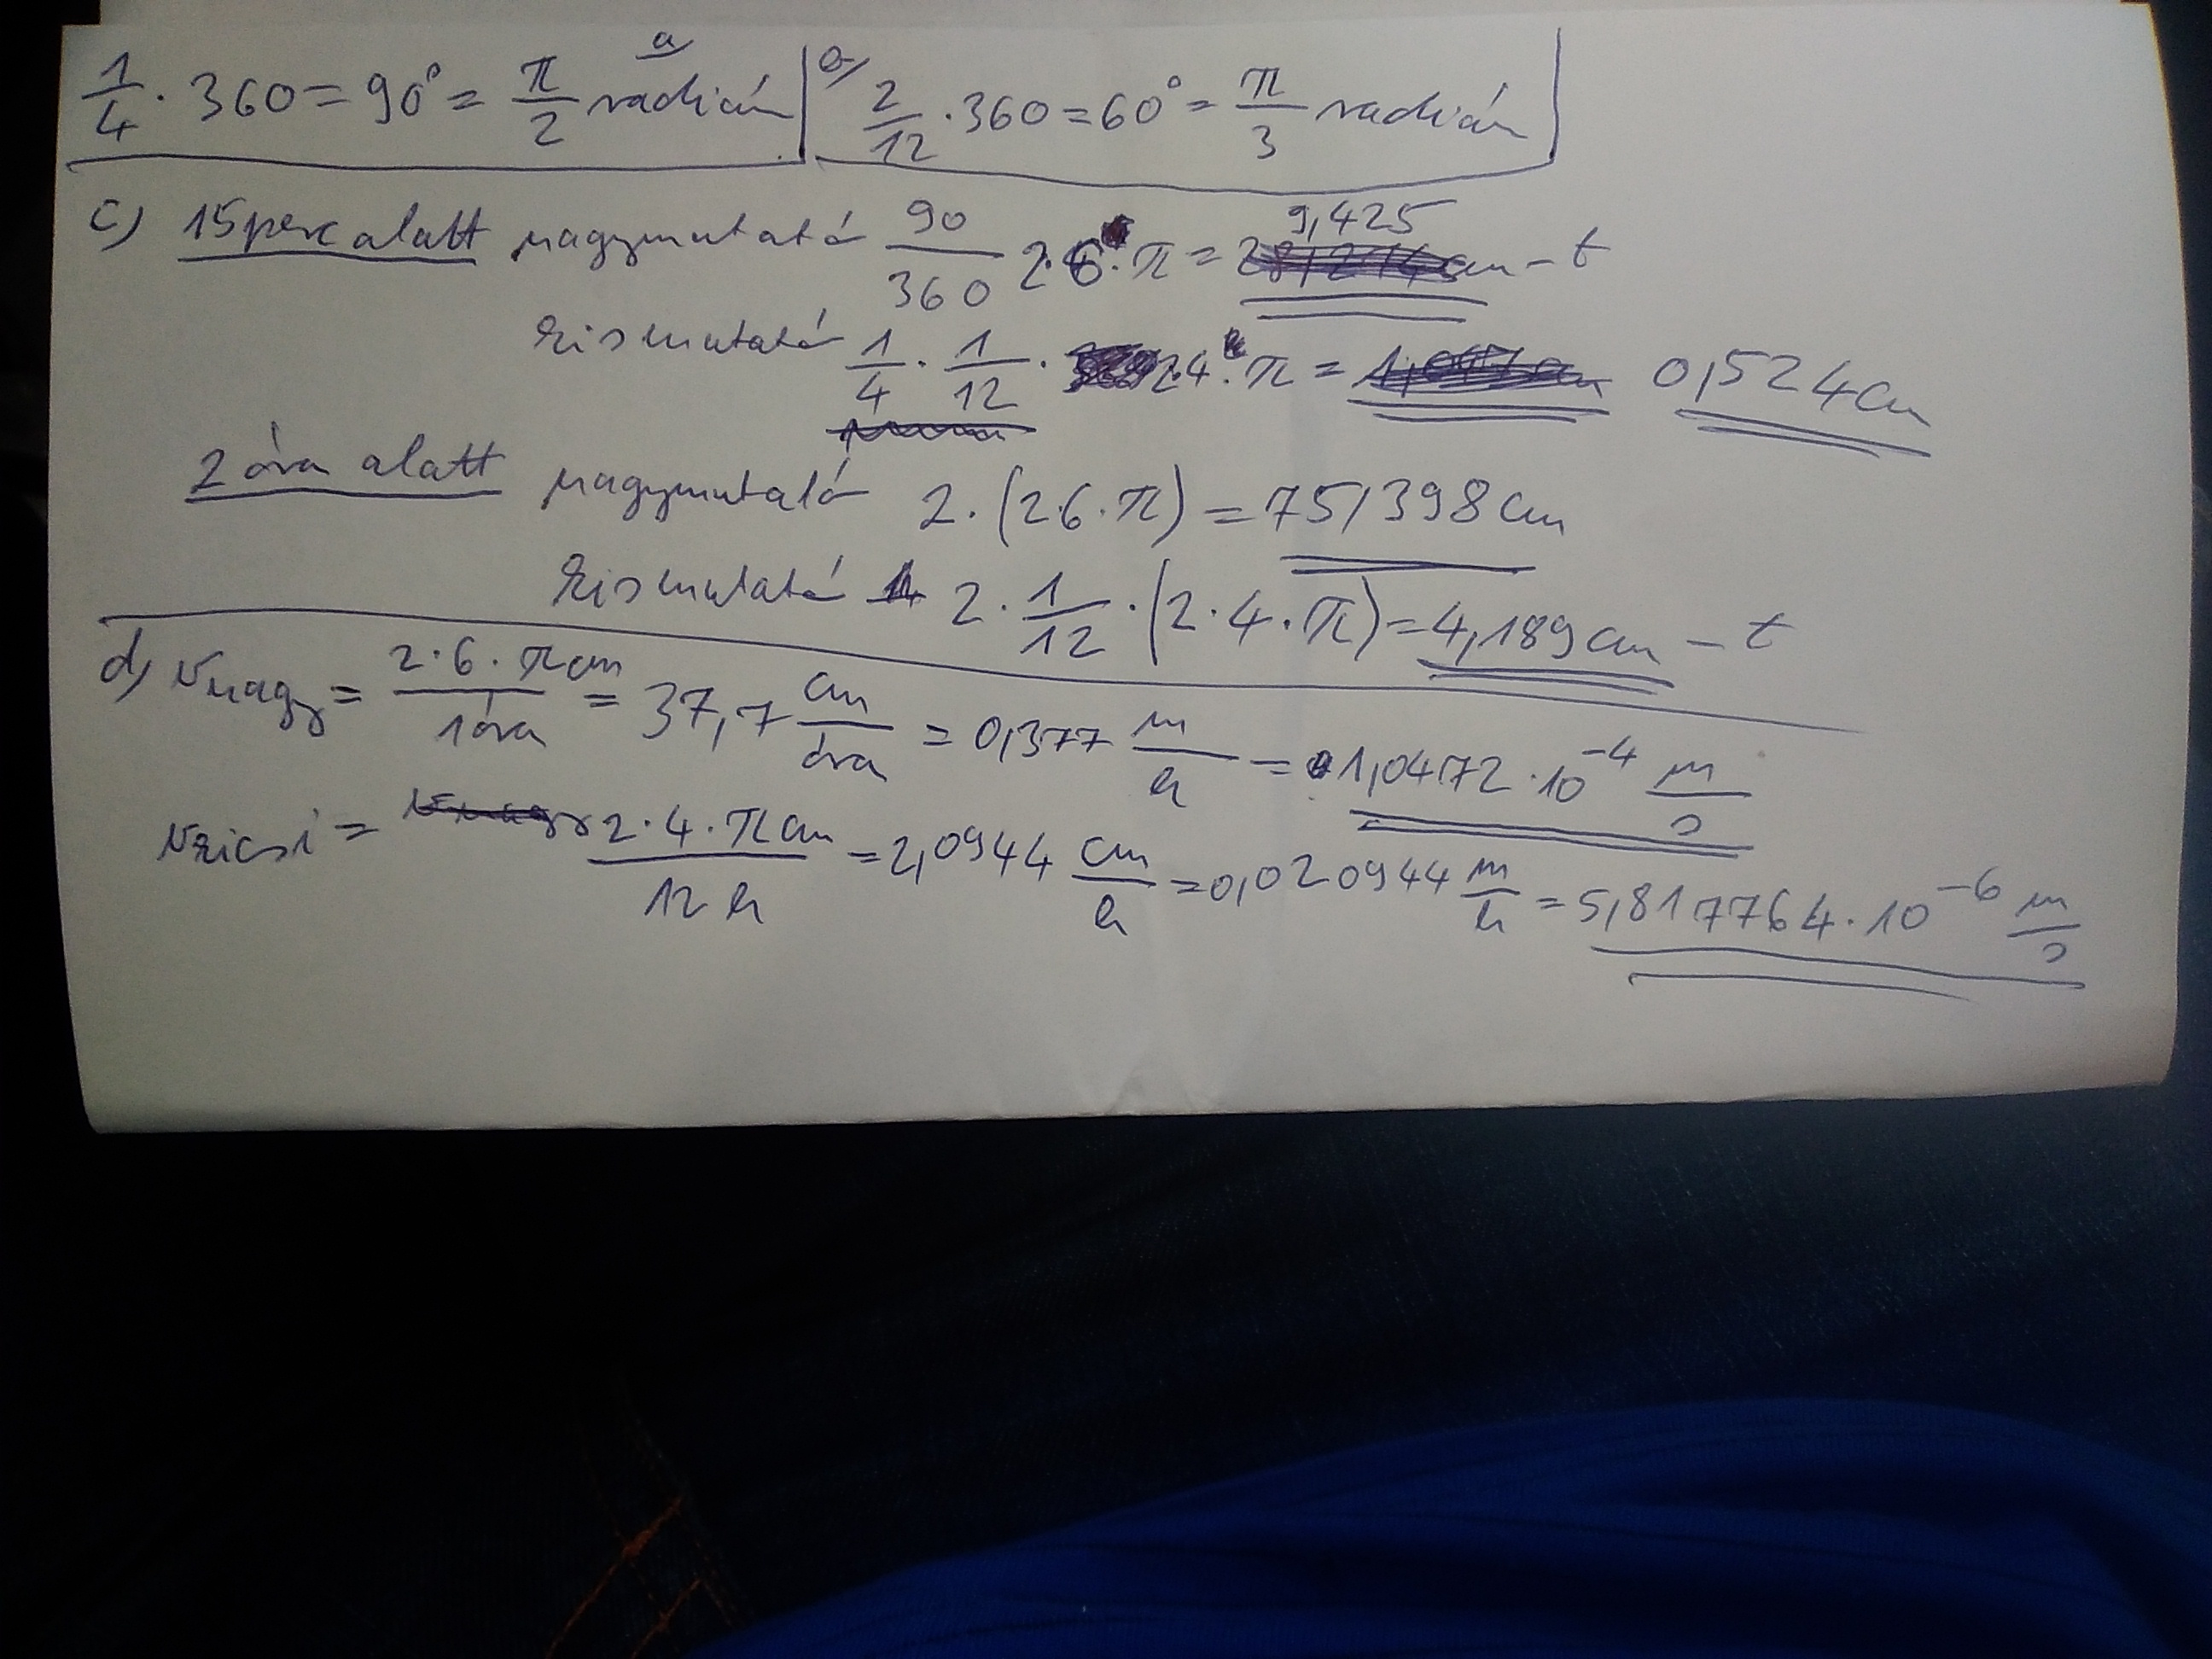 a
1/4 · 360 = 90° = π/2 radián
b, 2/12 · 360 = 60° = π/3 radián
c) 15 perc alatt nagymutató 90/360 2·6·π = 9,425 cm - t
kismutató 1/4 · 1/12 · 2·4·π = 0,524 cm
2 óra alatt nagymutató 2·(2·6·π) = 75,398 cm
kismutató 2 · 1/12 · (2·4·π) = 4,189 cm - t
d, vnagy = 2·6·π cm/1 óra = 37,7 cm/óra = 0,377 m/h = 1,0472 · 10^-4 m/s
vkicsi = 2·4·π cm/12 h = 2,0944 cm/h = 0,020944 m/h = 5,817764 · 10^-6 m/s